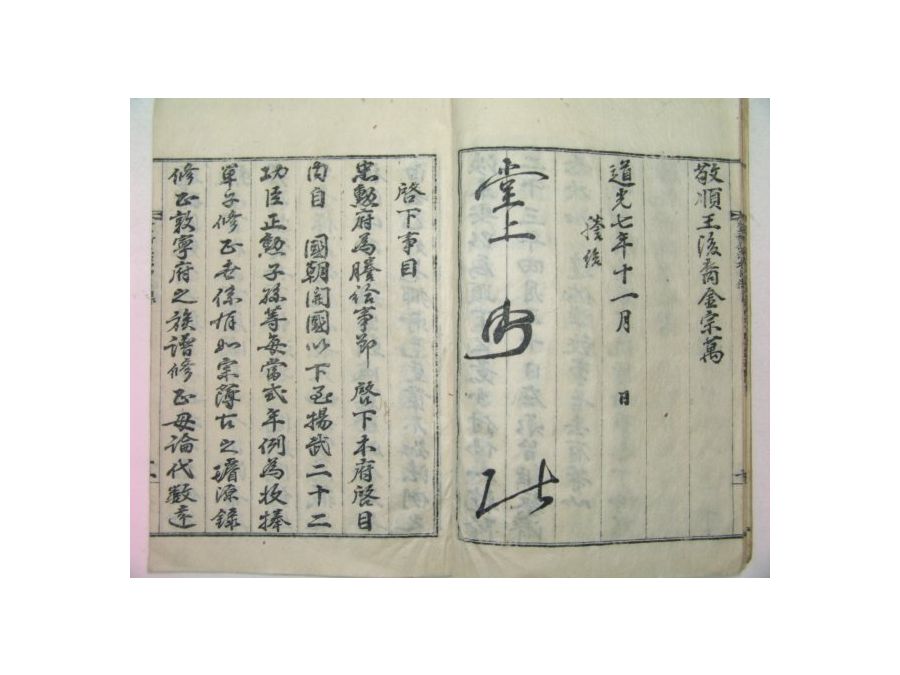 敬順王後裔金宗萬
道光七年十一月 日
謄給
堂上
啓下事目
忠勳府為謄給事節 啓下本府啓目
內自 國朝開國以下至揚武二十二
功臣正勲子孫等每當式年例為收捧
單子修正世係有如宗簿寺之璿源錄
修正敦寧府之族譜修正毋論代數遠